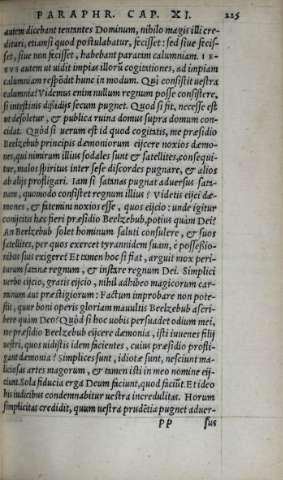 PARAPHR. CAP. XI. 225
autem dicebant tentantes Dominum, nihilo magis illi cre-
dituri, etiamsi quod postulabatur, fecisset: sed siue fecis-
set, siue non fecisset, habebant paratam calumniam. I E-
S V S autem ut uidit impias illorū cogitationes, ad impiam
calumniam respōdit hunc in modum. Qui consistit uestra
calumnia? Videmus enim nullum regnum posse consistere,
si intestinis dissidijs secum pugnet. Quod si fit, necesse est
ut desoletur, & publica ruina domus supra domum con-
cidat. Quòd si uerum est id quod cogitatis, me præsidio
Beelzebub principis dæmoniorum eijcere noxios dæmo-
nes, qui nimirum illius sodales sunt & satellites, consequi-
tur, malos spiritus inter sese discordes pugnare, & alios
ab alijs profligari. Iam si satanas pugnat aduersus sata-
nam, quomodo consistet regnum illius? Videtis eijci dæ-
mones, & fatemini noxios esse, quos eijcio: unde igitur
conijcitis hæc fieri præsidio Beelzebub, potius quàm Dei?
An Beelzebub solet hominum saluti consulere, & suos
satellites, per quos exercet tyrannidem suam, è possessio-
nibus suis exigere? Et tamen hoc si fiat, arguit mox peri-
turum satanæ regnum, & instare regnum Dei. Simplici
uerbo eijcio, gratis eijcio, nihil adhibeo magicorum car-
minum aut præstigiorum: Factum improbare non pote-
stis, quur boni operis gloriam mauultis Beelzebub ascri-
bere quàm Deo? Quòd si hoc uobis persuadet odium mei,
me præsidio Beelzebub eijcere dæmonia, isti iuuenes filij
uestri, quos uidistis idem facientes, cuius præsidio profli-
gant dæmonia? Simplices sunt, idiotæ sunt, nesciunt ma-
liciosas artes magorum, & tamen isti in meo nomine eij-
ciunt. Sola fiducia erga Deum faciunt, quod faciūt. Et ideo
his iudicibus condemnabitur uestra incredulitas. Horum
simplicitas credidit, quum uestra prudētia pugnet aduer-
PP sus